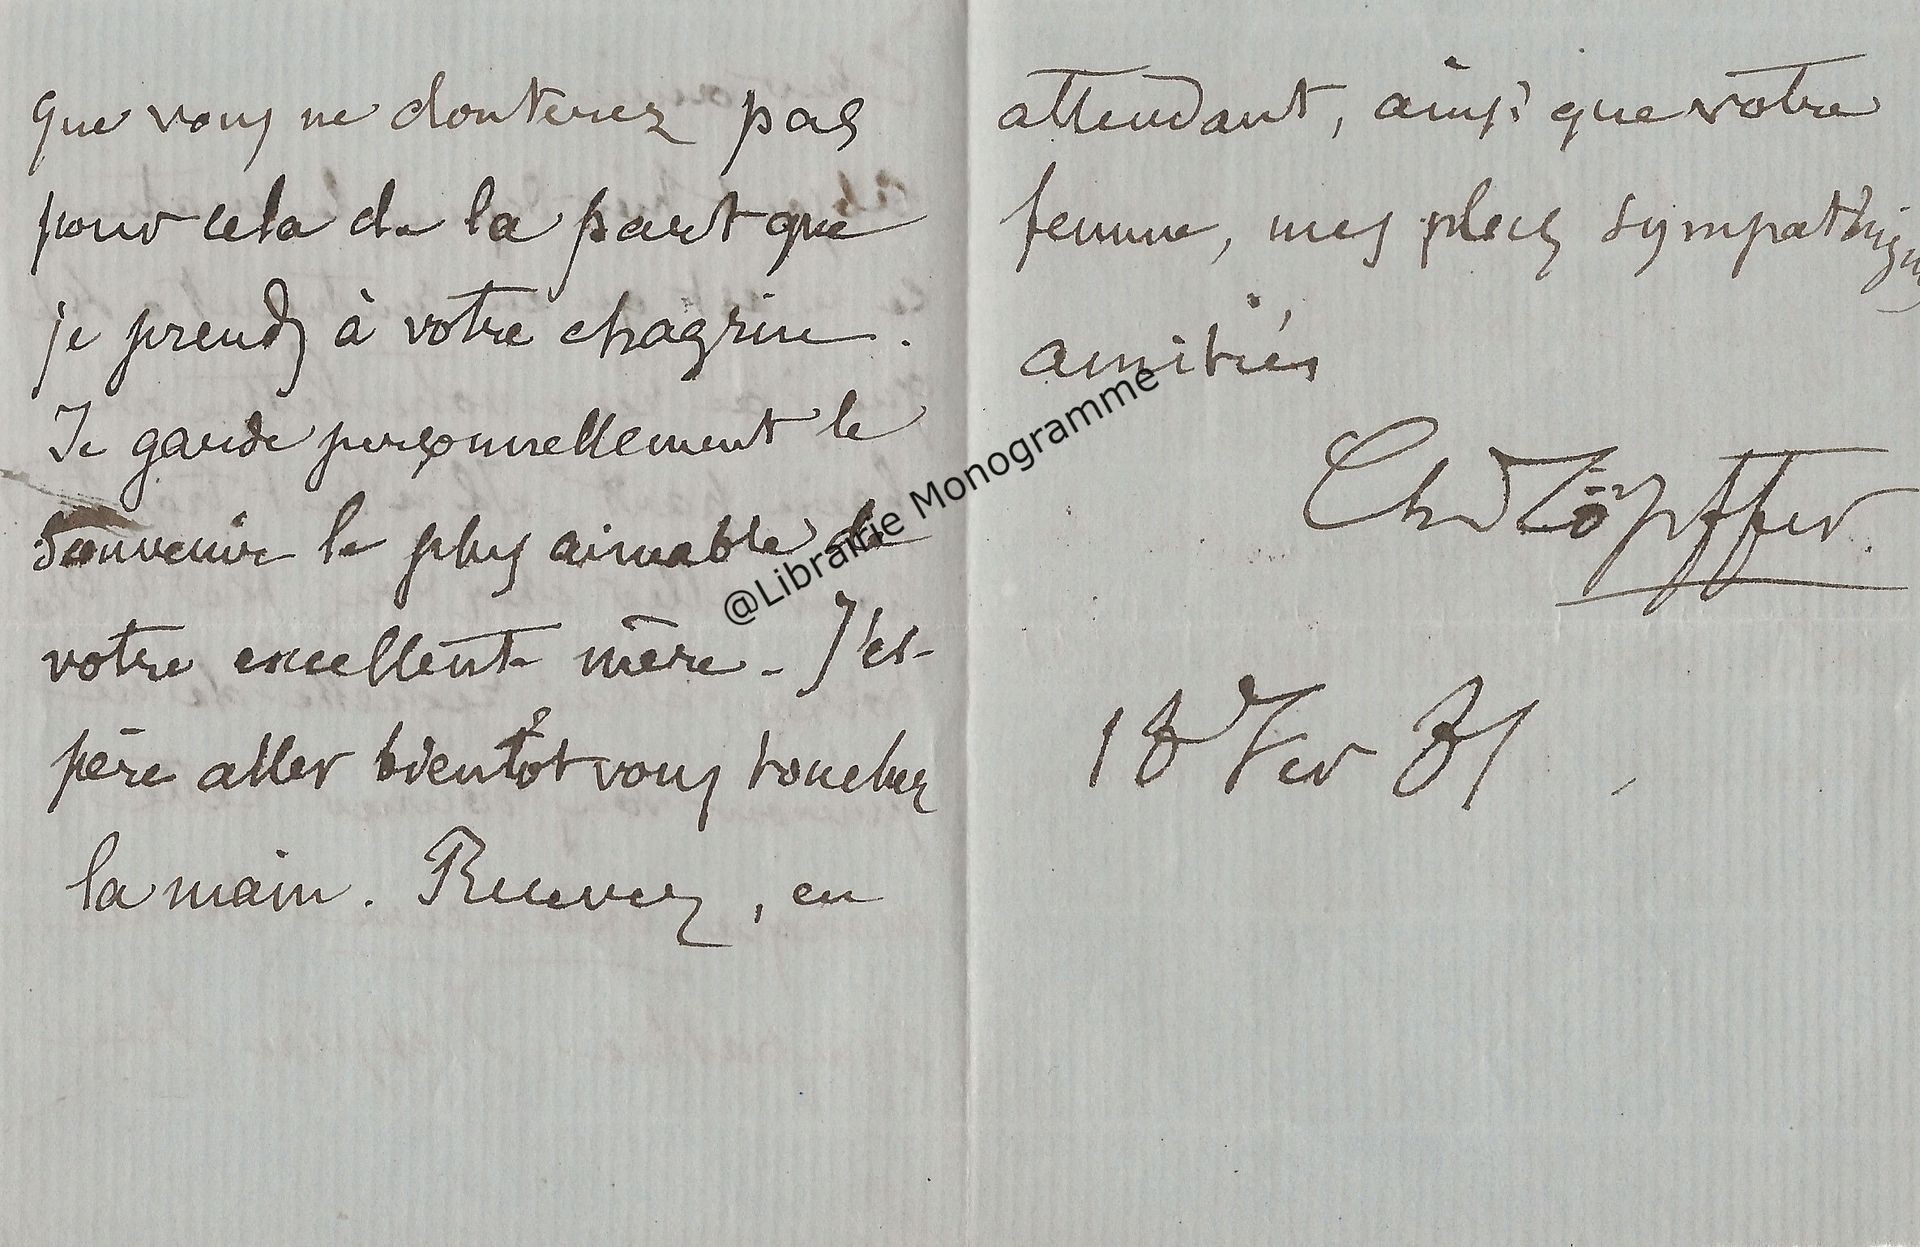 que vous ne douterez pas
pour cela de la part que
je prends à votre chagrin.
Je garde personnellement le
souvenir le plus aimable de
votre excellente mère. J'es-
père aller bientôt vous toucher
la main. Recevez, en
attendant, ainsi que votre
femme, mes plus sympathiques
amitiés
Ch Töpffer
18 Fev 81
@Librairie Monogramme